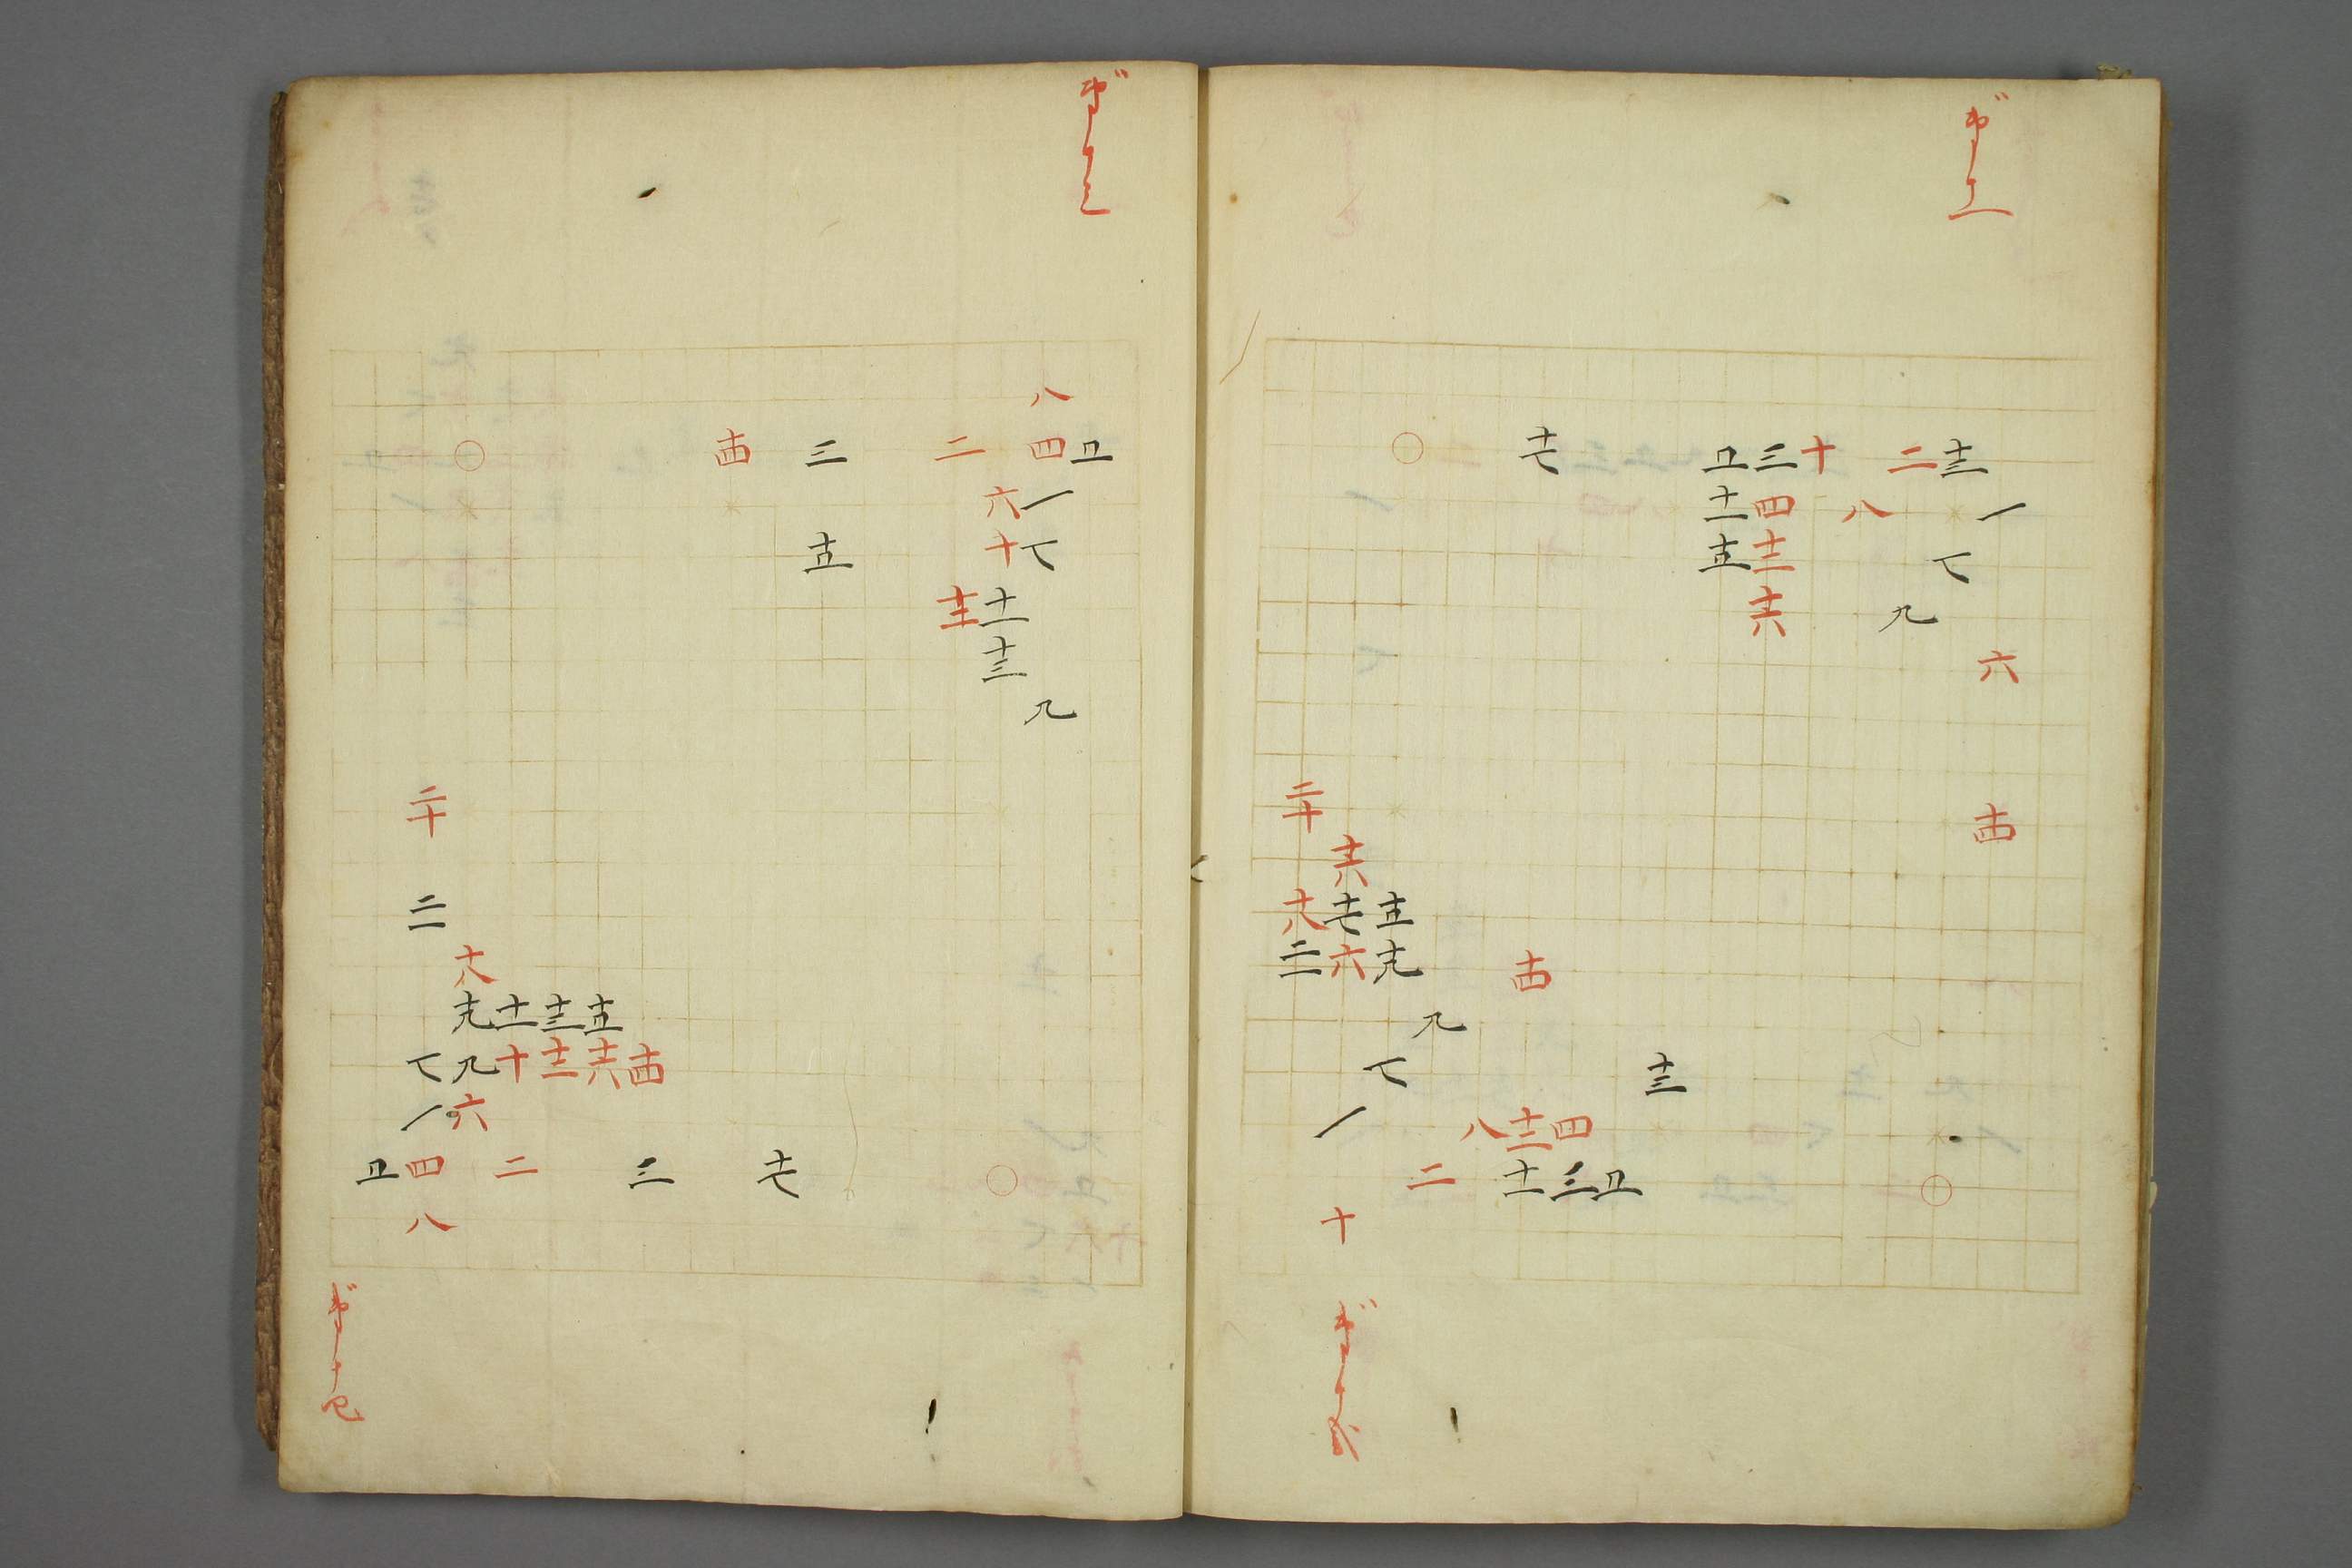 ○ 十七 五 三 十 二 十三
十一 四 八 一
十五 十二 七
十六 九
六
二十 十四
十六
十八 十七 十五
二十一 六 十九 十四
九
七 十三
一 八 十二 四
二 十一 三 五 ○
十
八
○ 十四 三 二 四 五
六 一
十五 十 七
十二 十一
十三
九
二十
二十一
十八
十九 十一 十三 十五
七 九 十 十二 十六 十四
一 六
五 四 二 三 十七 ○
八